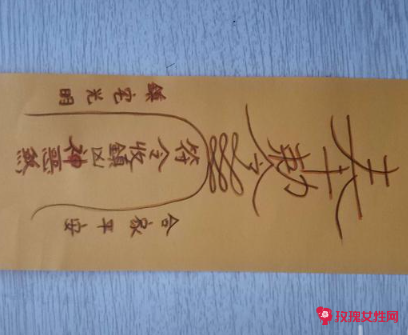 勅令
鎮宅光明
符令收鎮凶神惡煞
合家平安
玫瑰女性网